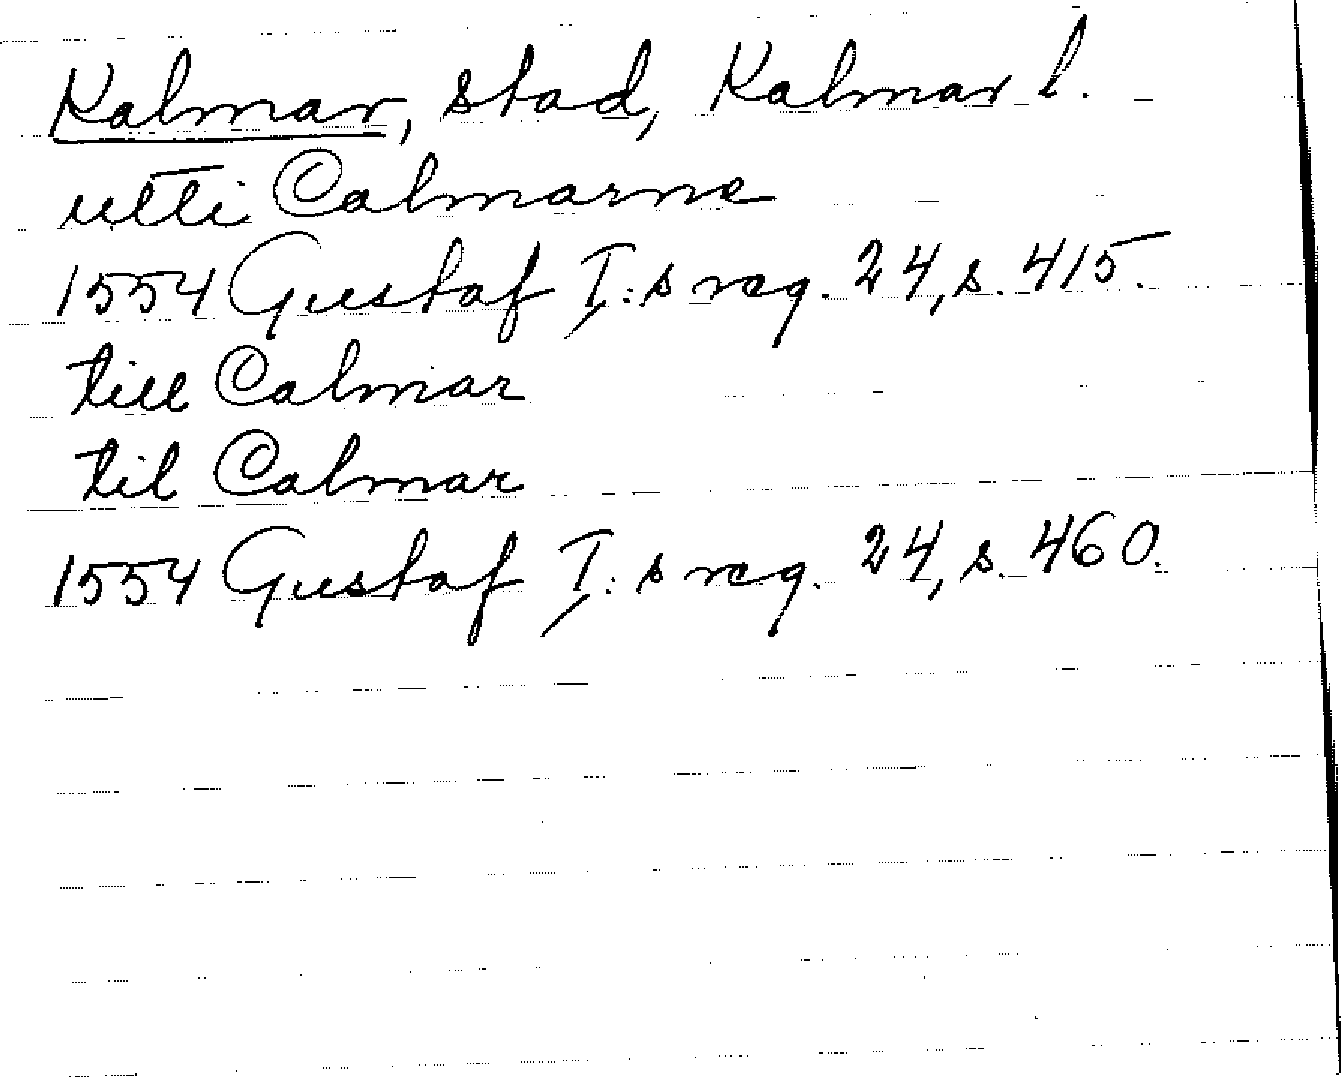 Kalmar, stad, Kalmar l.
utti Calmarne
1554 Gustaf I:s reg. 24, s. 415.
till Calmar
til Calmar
1554 Gustaf I:s reg. 24, s. 460.